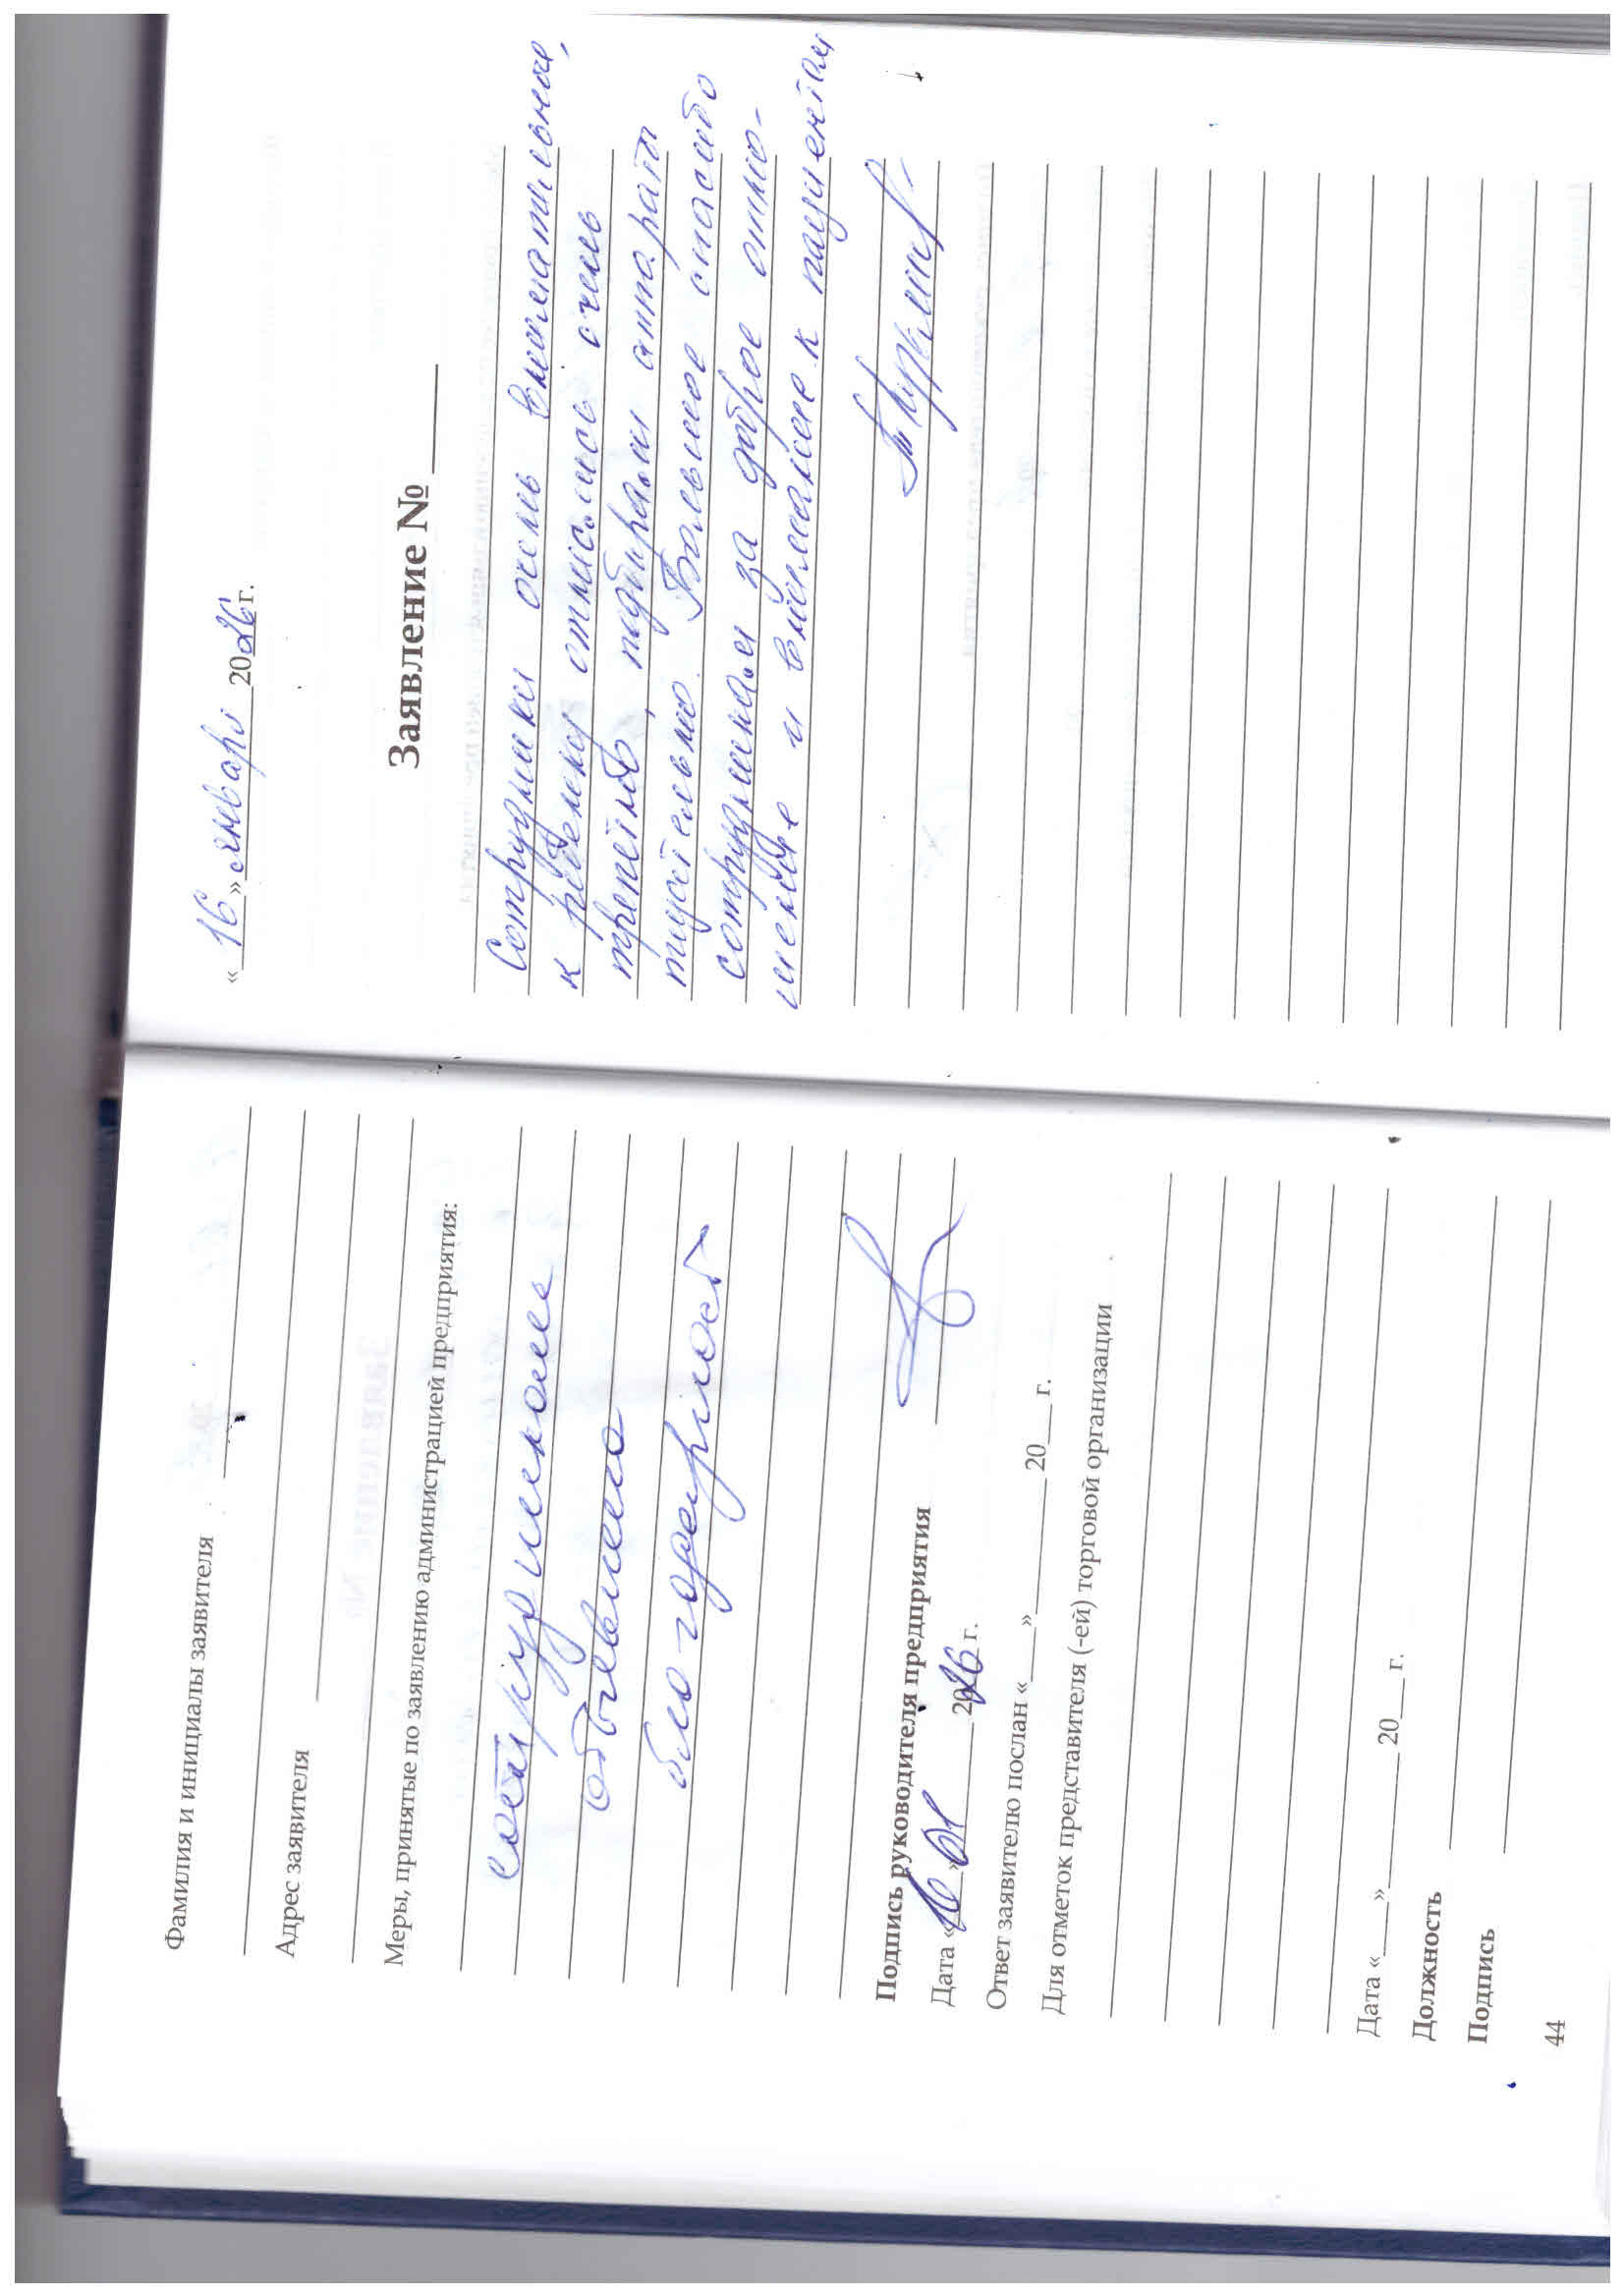 Фамилия и инициалы заявителя
Адрес заявителя
Меры, принятые по заявлению администрацией предприятия:
сотрудникам
объявлена
благодарность
Подпись руководителя предприятия
Дата «16» 01 2026 г.
Ответ заявителю послан «___»________ 20___ г.
Для отметок представителя (-ей) торговой организации
Дата «___»________ 20___ г.
Должность
Подпись
44
«16» января 2026 г.
Заявление № ______
Сотрудники очень внимательные,
к ребенку отнеслись очень
трепетно, подбирали аппарат
тщательно. Большое спасибо
сотрудникам за доброе отно-
шение и внимание к пациентам